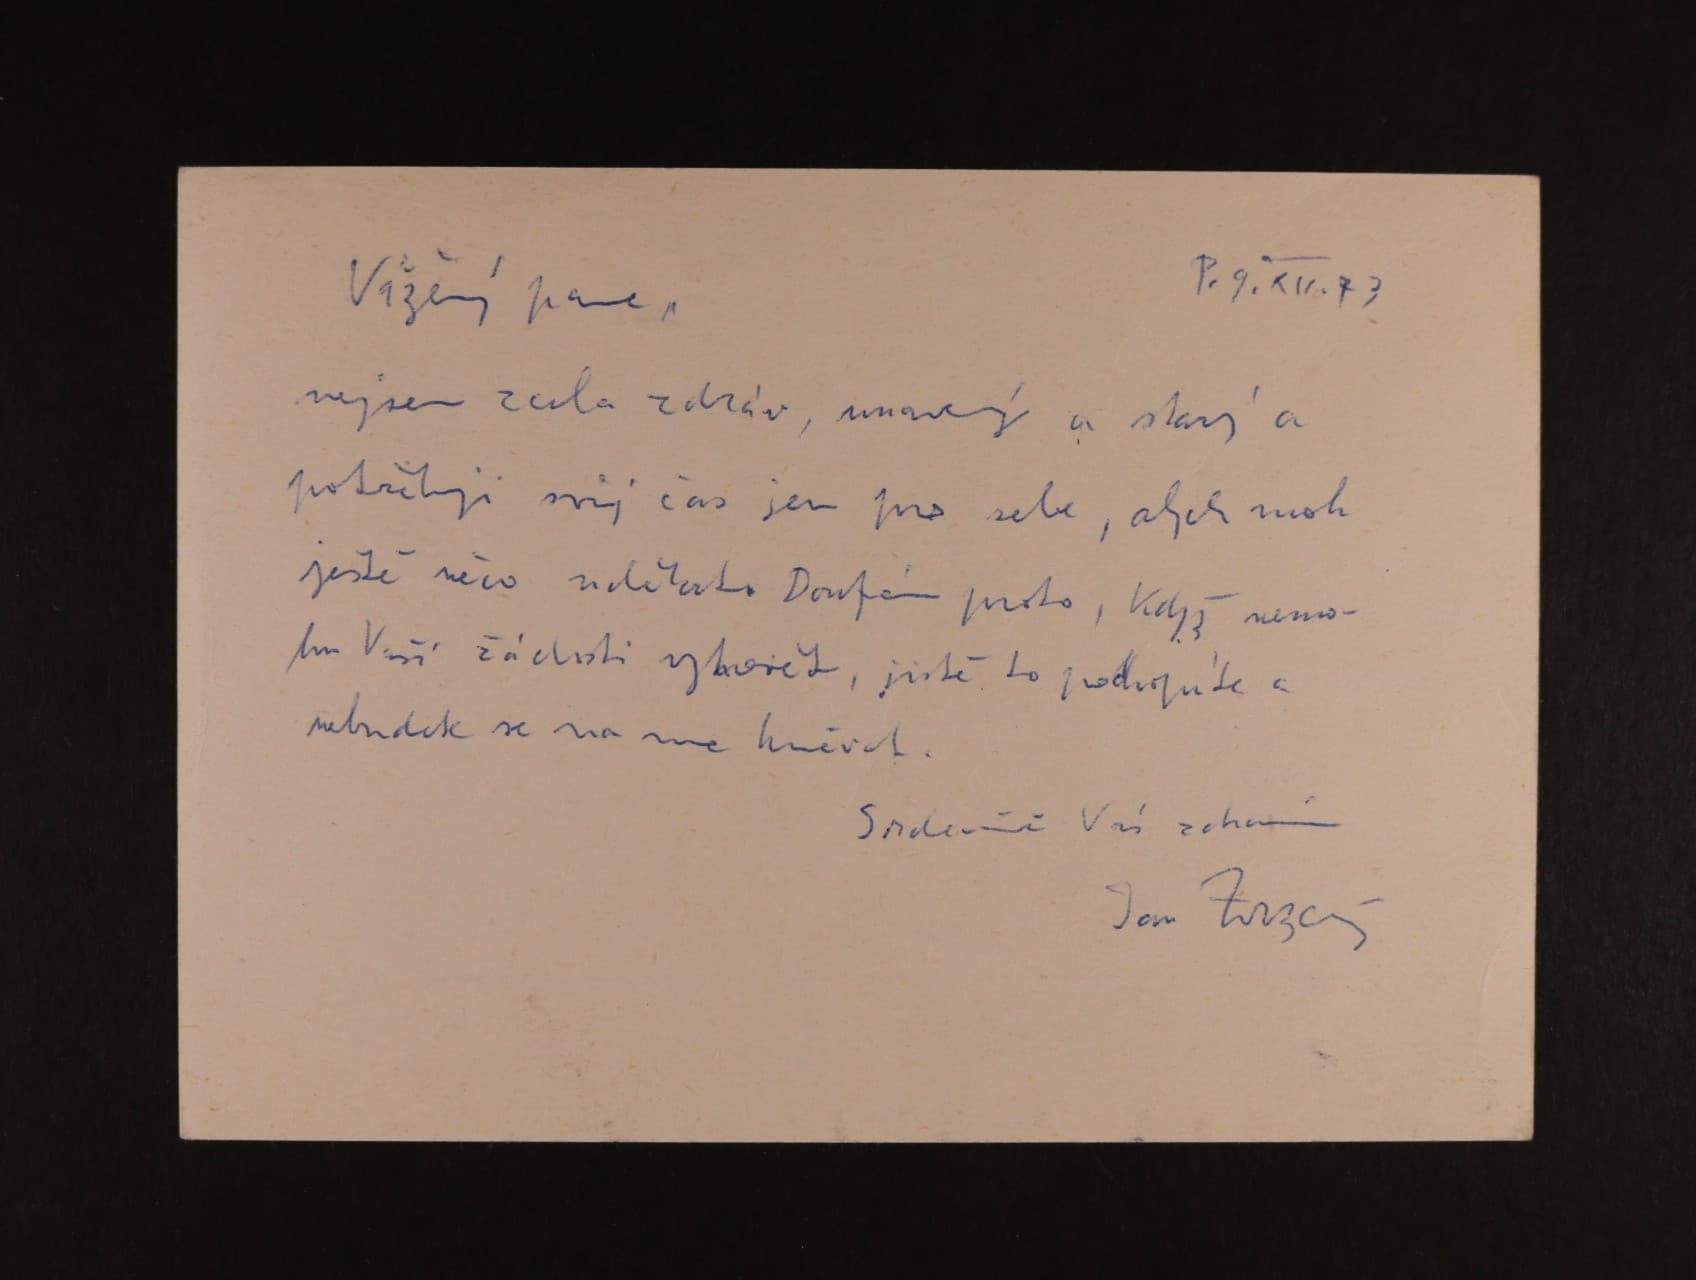 P. 9. XII. 73
Vážený pane,
nejsem zcela zdráv, unavený a starý a
potřebuji svůj čas jen pro sebe, abych moh
ještě něco udělat. Doufám proto, když nemo-
hu Vaší žádosti vyhovět, jistě to pochopíte a
nebudete se na mne hněvat.
Srdečně Vás zdraví
Jan Zrzavý